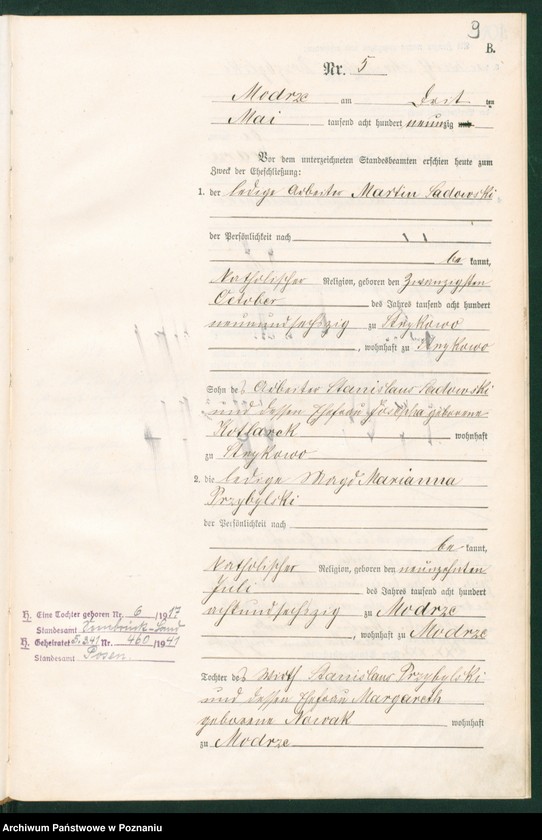 9
B.
Nr. 5
Modrze am ten
Mai tausend acht hundert neunzig
Vor dem unterzeichneten Standesbeamten erschien heute zum
Zweck der Eheschließung:
1. der ledige Arbeiter Martin Sadowski
der Persönlichkeit nach
be kannt,
katholischer Religion, geboren den zwanzigsten
October des Jahres tausend acht hundert
neunundsechszig zu Strykowo
, wohnhaft zu Strykowo
Sohn des Arbeiter Stanislaus Sadowski
und dessen Ehefrau Josepha geborene
Kotlarek wohnhaft
zu Strykowo
2. die ledige Magd Marianna
Przybylski
der Persönlichkeit nach
be kannt,
katholischer Religion, geboren den neunzehnten
Juli des Jahres tausend acht hundert
achtundsechszig zu Modrze
, wohnhaft zu Modrze
H. Eine Tochter geboren Nr. 6 /1917
Standesamt
H. Geheiratet Nr. 460 /1941
Standesamt Posen
Tochter des Wirth Stanislaus Przybylski
und dessen Ehefrau Margareth
geborene Nowak wohnhaft
zu Modrze
Archiwum Państwowe w Poznaniu